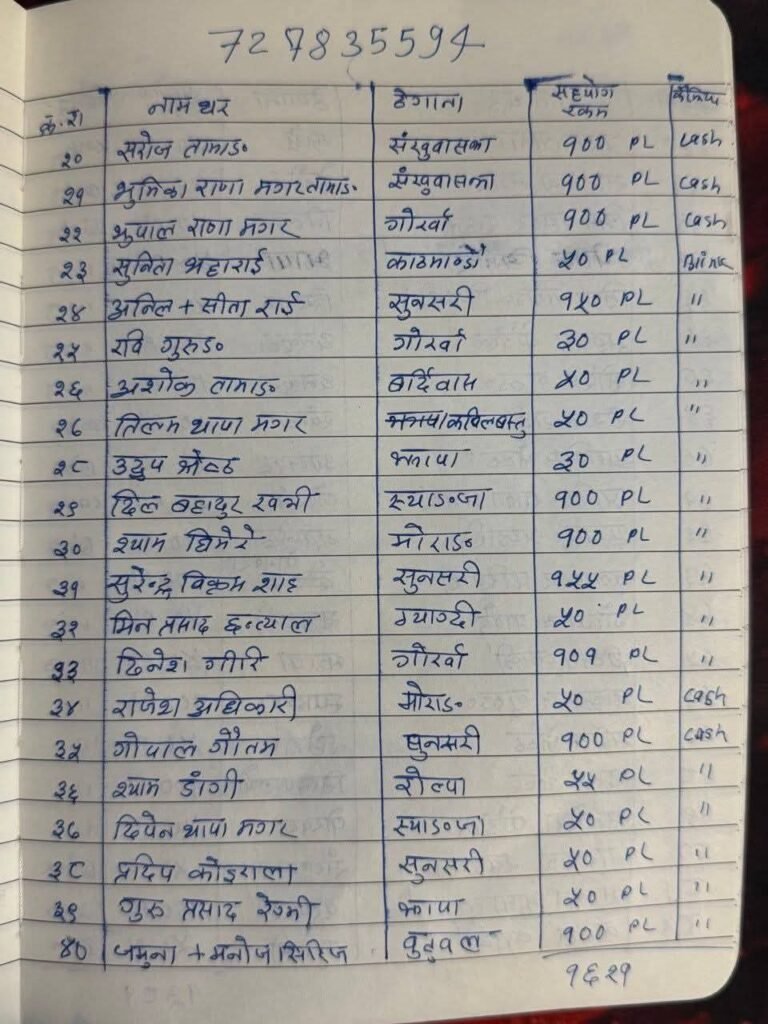 727835594
क्र.सं नाम थर ठेगाना सहयोग रकम कैफियत
२० सरोज तामाङ संखुवासभा १०० PL cash
२१ भुमिका राणा मगर तामाङ संखुवासभा १०० PL cash
२२ भुपाल राणा मगर गोर्खा १०० PL cash
२३ सुनिता भट्टाराई काठमाण्डौ ५० PL Blink
२४ अनिल + सीता राई सुनसरी १५० PL "
२५ रवि गुरुङ गोर्खा ३० PL "
२६ अशोक तामाङ बर्दिवास ५० PL "
२७ तिलम थापा मगर कपिलबस्तु ५० PL "
२८ उद्धुप श्रेष्ठ झापा ३० PL "
२९ दिल बहादुर खत्री स्याङजा १०० PL "
३० श्याम घिमिरे मोराङ १०० PL "
३१ सुरेन्द्र विक्रम शाह सुनसरी १५५ PL "
३२ मिन प्रसाद छन्त्याल म्याग्दी ५० PL "
३३ दिनेश गीरि गोर्खा १०१ PL "
३४ राजेश अधिकारी मोराङ ५० PL cash
३५ गोपाल गौतम सुनसरी १०० PL cash
३६ श्याम डाँगी रोल्पा ५५ PL "
३७ दिपेन थापा मगर स्याङजा ५० PL "
३८ प्रदिप कोइराला सुनसरी ५० PL "
३९ गुरु प्रसाद रेग्मी झापा ५० PL "
४० जमुना + मनोज सिरिज वुटुवल १०० PL "
१६२१